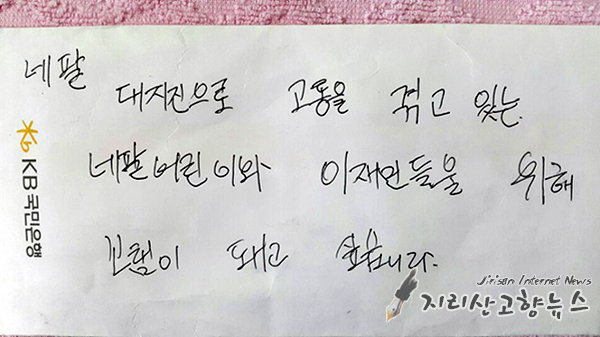 네팔 대지진으로 고통을 겪고 있는
네팔어린이와 이재민들을 위해
보탬이 돼고 싶습니다.
KB 국민은행
Jirisan Internet News
지리산고향뉴스